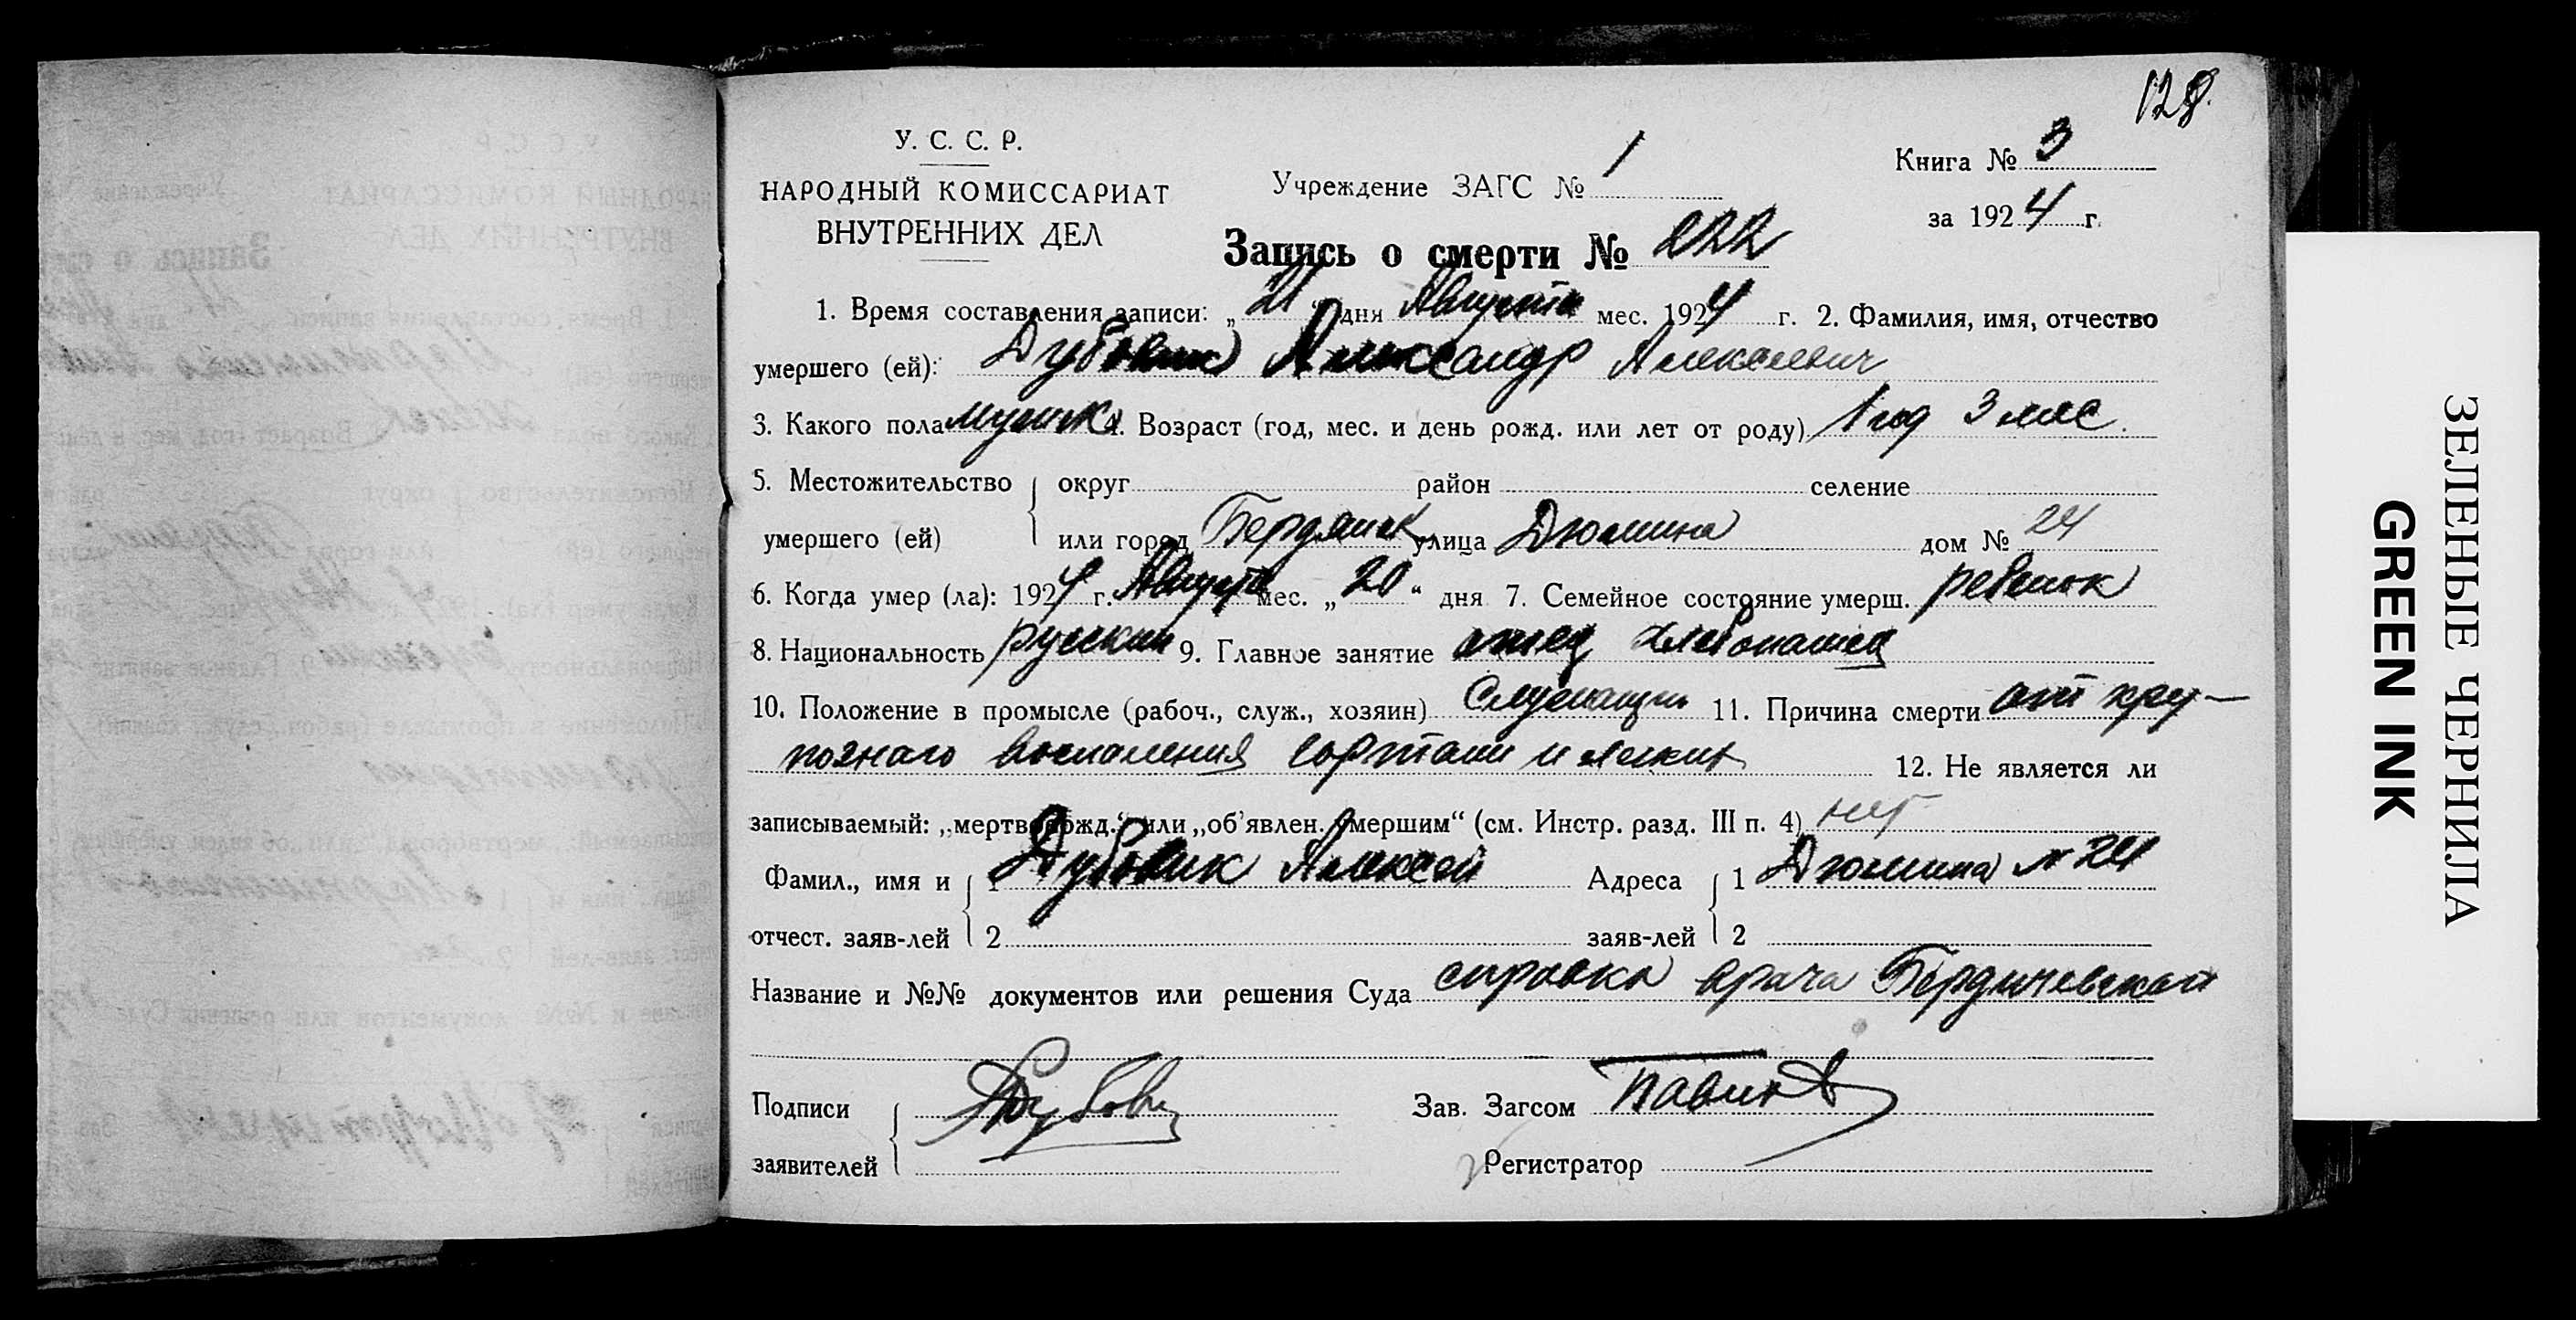 128.
У. С. С. Р.
НАРОДНЫЙ КОМИССАРИАТ
ВНУТРЕННИХ ДЕЛ
Учреждение ЗАГС № 1
Книга № 3
за 1924 г.
Запись о смерти № 222
1. Время составления записи: „21" дня Августа мес. 1924 г. 2. Фамилия, имя, отчество
умершего (ей): Дубовик Александр Алексеевич
3. Какого пола мужск 4. Возраст (год, мес. и день рожд. или лет от роду) 1 год 3 мес.
5. Местожительство округ район селение
умершего (ей) или город Бердянск улица Дюмина дом № 24
6. Когда умер (ла): 1924 г. Августа мес. „20" дня 7. Семейное состояние умерш. ребенок
8. Национальность русский 9. Главное занятие отец хлебопашец
10. Положение в промысле (рабоч., служ., хозяин) Служащий 11. Причина смерти от кру-
познаго воспаления гортани и легких 12. Не является ли
записываемый: „мертворожд." или „об'явлен. умершим" (см. Инстр. разд. III п. 4) нет
Фамил., имя и 1 Дубовик Алексей Адреса 1 Дюмина № 24
отчест. заяв-лей 2 заяв-лей 2
Название и №№ документов или решения Суда справка врача Бердичевской
Подписи АДубовик Зав. Загсом
заявителей Регистратор
ЗЕЛЕНЫЕ ЧЕРНИЛА
GREEN INK